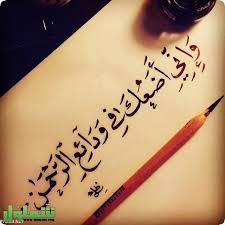 وَإِنِّي أَضَعُكِ فِي وَدَائِعِ الرَّحْمٰنِ